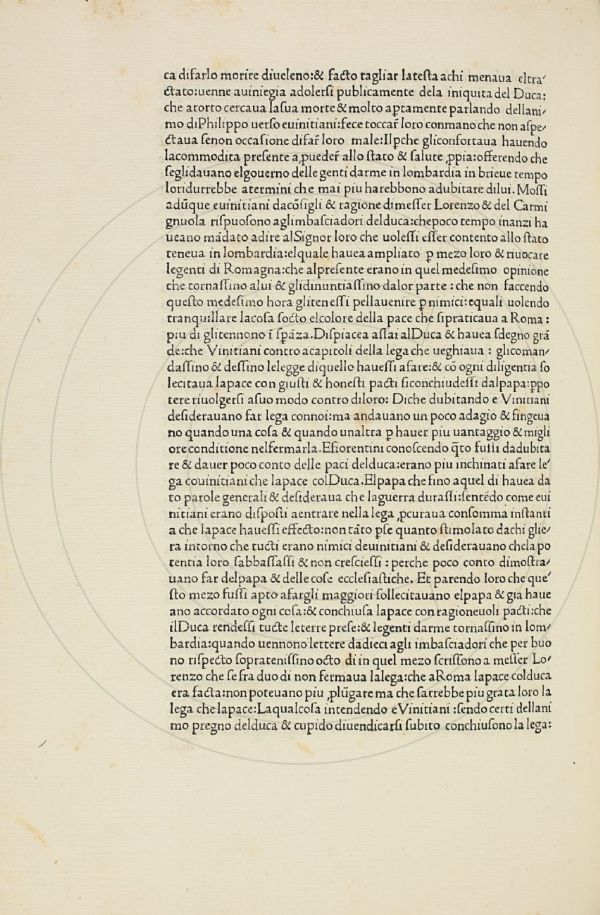 ca difarlo morire diueleno:& facto tagliar latesta achi menaua eltra/
ctato:uenne auiniegia adolersi publicamente dela iniquita del Duca:
che atorto cercaua lasua morte & molto aptamente parlando dellani/
mo diPhilippo uerso euinitiani:fece toccar̃ loro conmano che non aspe/
ctaua senon occasione difar̃ loro male:Ilꝑche gliconfortaua hauendo
lacommodita presente a,pueder̃ allo stato & salute ,ppia:offerendo che
seglidauano elgouerno delle genti darme in lombardia in brieue tempo
loridurrebbe atermini che mai piu harebbono adubitare dilui. Mossi
adũque euinitiani dacõsigli & ragione dimesser Lorenzo & del Carmi
gnuola rispuosono aglimbasciadori delduca:chepoco tempo inanzi ha
ueano mãdato adire alSignor loro che uolessi esser contento allo stato
teneua in lombardia:elquale hauea ampliato ꝑ mezo loro & riuocare
legenti di Romagna:che alpresente erano in quel medesimo opinione
che tornassino alui & glidinuntiassino dalor parte : che non faccendo
questo medesimo hora gliteneſſi pellauenire ꝑ nimici:equali uolendo
tranquillare lacosa socto elcolore della pace che sipraticaua a Roma :
piu di glitennono ĩ spãza. Dispiacea assai alDuca & hauea sdegno grã
de:che Vinitiani contro acapitoli della lega che ueghiaua : glicoman/
dassino & dessino lelegge diquello hauessi afare:& cõ ogni diligentia so
lecitaua lapace con giusti & honesti pacti siconchiudessi dalpapa:ppo
tere riuolgersi asuo modo contro diloro: Diche dubitando e Vinitiani
desiderauano far lega connoi:ma andauano un poco adagio & fingeua
no quando una cosa & quando unaltra ꝑ hauer piu uantaggio & migli
ore conditione nelfermarla. Efiorentini conoscendo q̃to fussi dadubita
re & dauer poco conto delle paci delduca:erano piu inchinati afare le/
ga couinitiani che lapace colDuca. Elpapa che fino aquel di hauea da
to parole generali & desideraua che laguerra durassi:sentẽdo come eui
nitiani erano disposti aentrare nella lega ,pcuraua consomma instanti
a che lapace hauessi effecto:non tãto ꝑse quanto stimolato dachi glie/
ra intorno che tucti erano nimici deuinitiani & desiderauano chela po
tentia loro sabbassassi & non cresciessi : perche poco conto dimostra/
uano far delpapa & delle cose ecclesiastiche. Et parendo loro che que/
sto mezo fussi apto afargli maggiori sollecitauano elpapa & gia haue
ano accordato ogni cosa:& conchiusa lapace con ragioneuoli pacti:che
ilDuca rendessi tucte leterre prese:& legenti darme tornassino in lom/
bardia:quando uennono lettere dadieci agli imbasciadori che per buo
no rispecto sopratenissino octo di in quel mezo scrissono a messer Lo/
renzo che se fra duo di non fermaua lalega:che aRoma lapace colduca
era facta:non poteuano piu ,plũgare ma che sarrebbe piu grata loro la
lega che lapace:Laqualcosa intendendo eVinitiani :sendo certi dellani
mo pregno delduca & cupido diuendicarsi subito conchiusono la lega: